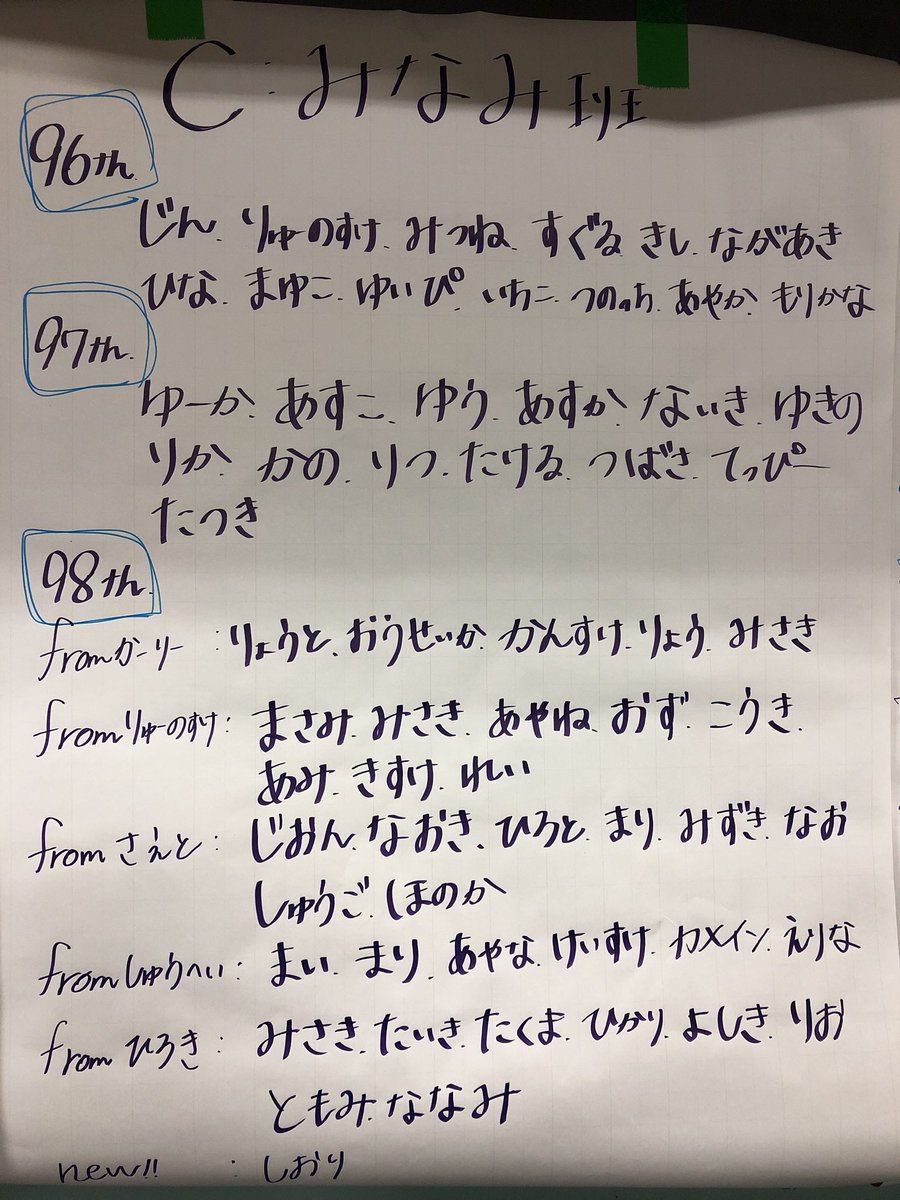 C:みなみ班
96th.
じん. りゅーのすけ. みつね. すぐる. きし. ながあき
ひな. まゆこ. ゆいぴ. いちこ. つのっち. あやか. もりかな
97th.
ゆーか. あすこ. ゆう. あすか. ないき. ゆきの
りか. かの. りつ. たける. つばさ. てっぴー
たつき
98th.
fromかーりー : りょうと. おうせいか. かんすけ. りょう. みさき
fromりゅーのすけ: まさみ. みさき. あやね. おず. こうき.
あみ. きすけ. れい
fromさえと: じおん. なおき. ひろと. まり. みずき. なお
しゅうご. ほのか
fromしゅうへい: まい. まり. あやな. けいすけ. カメイン. えりな
fromひろき: みさき. たいき. たくま. ひかり. よしき. りお
ともみ. ななみ
new!! : しおり